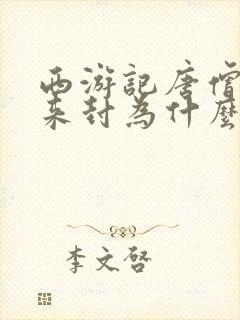 西游記唐僧
來封為什麼
李文啓